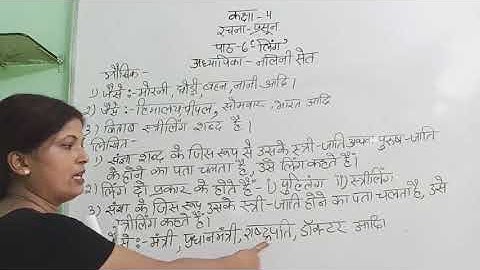 कक्षा - 4
रचना - प्रसून
पाठ - 6 'लिंग'
अध्यापिका - नलिनी सेत
मौखिक -
1) जैसे :- मोरनी, चौड़ी, बहन, नानी आदि।
2) जैसे :- हिमालय, पीपल, सोमवार, भारत आदि
3) किताब स्त्रीलिंग शब्द है।
लिखित -
1) संज्ञा शब्द के जिस रूप से उसके स्त्री-जाति अथवा पुरुष-जाति
के होने का पता चलता है, उसे लिंग कहते हैं।
2) लिंग दो प्रकार के होते हैं - i) पुल्लिंग ii) स्त्रीलिंग
3) संज्ञा के जिस रूप उसके स्त्री-जाति होने का पता चलता है, उसे
स्त्रीलिंग कहते हैं।
जैसे :- मंत्री, प्रधानमंत्री, राष्ट्रपति, डॉक्टर आदि